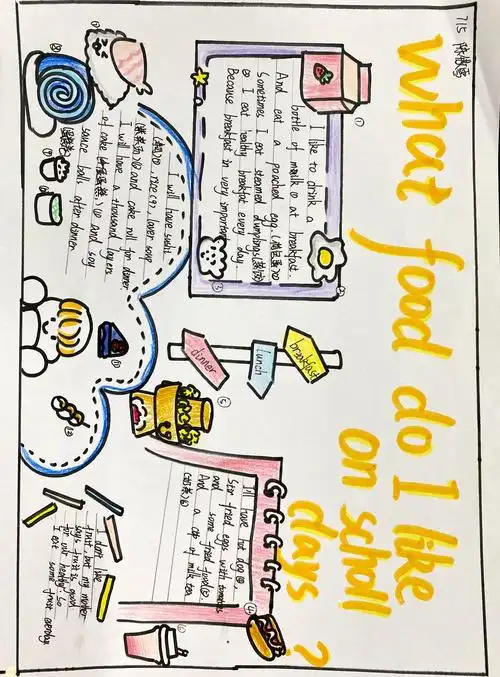 715
what food do I like
on scholl
days ?
I like to drink a
bottle of maulk ① at breakfast.
And eat a poached egg.
Sometimes I eat steamed dumplings
③ I eat healthy breakfast every day
Because breakfast in very important
①
②
③
breakfast
lunch
dinner
I'll have hot dog ④,
Stir fried eggs with tomatoes
and some fried food ⑤
And a cup of milk tea
(奶茶)⑥
④
⑤
⑥
I will have sushi
, rice (9), laver soup
and cake roll for dinner.
I will have a thousand layers
of cake (千层蛋糕) and soy
sauce balls after dinner.
I don't like
fruit, but my mother
says fruit is good
for our healthy. So
I eat some fruit everday